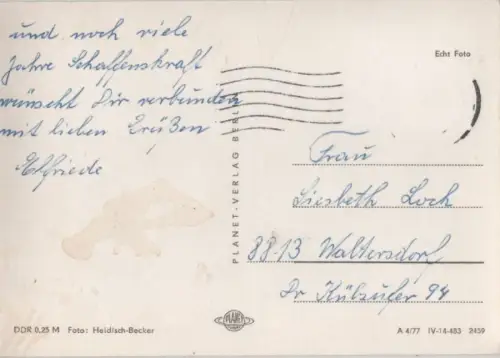 und noch viele
Jahre Schaffenskraft
wünscht Dir verbunden
mit lieben Grüßen
Elfriede
Echt Foto
PLANET-VERLAG BERLIN
Frau
Liesbeth Loch
88-13 Waltersdorf
Dr Külzufer 94
DDR 0,25 M Foto: Heidisch-Becker
PLANET
A 4/77 IV-14-483 2459